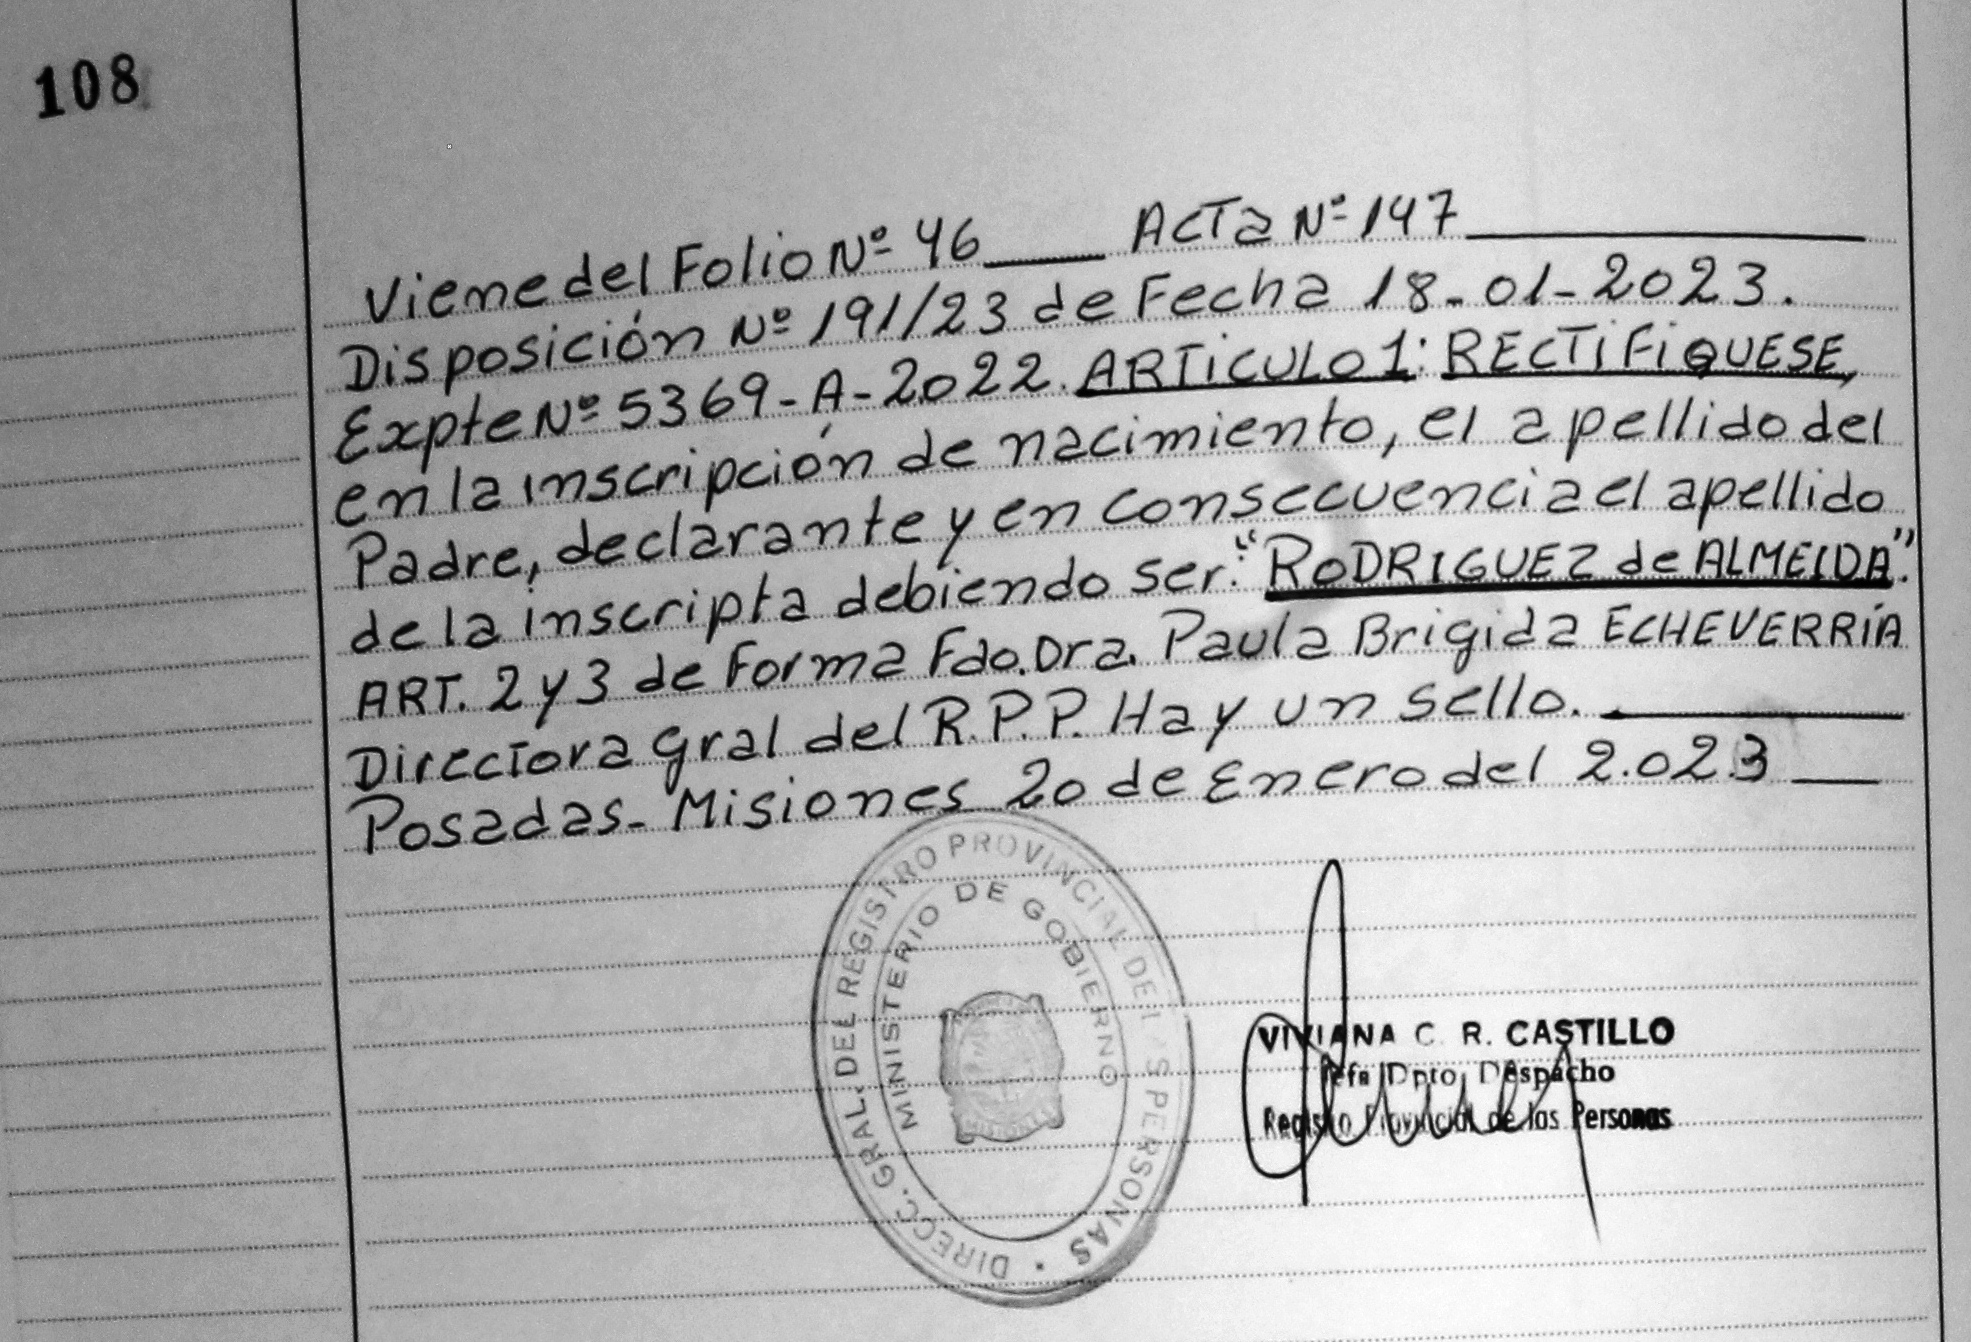 108
Viene del Folio Nº 46 Acta Nº 147
Disposición Nº 191/23 de Fecha 18-01-2023.
Expte Nº 5369-A-2022. ARTiCULO 1: RECTiFiQUESE,
en la inscripción de nacimiento, el apellido del
Padre, declarante y en consecuencia el apellido
de la inscripta debiendo ser: "RODRIGUEZ de ALMEIDA".
ART. 2 y 3 de Forma Fdo. Dra. Paula Brigida ECHEVERRÍA
Directora Gral del R.P.P. Hay un sello.
Posadas - Misiones 20 de Enero del 2.023
DIRECC. GRAL. DEL REGISTRO PROVINCIAL DE LAS PERSONAS
MINISTERIO DE GOBIERNO
MISIONES
VIVIANA C. R. CASTILLO
Jefa Dpto Despacho
Registro Provincial de las Personas